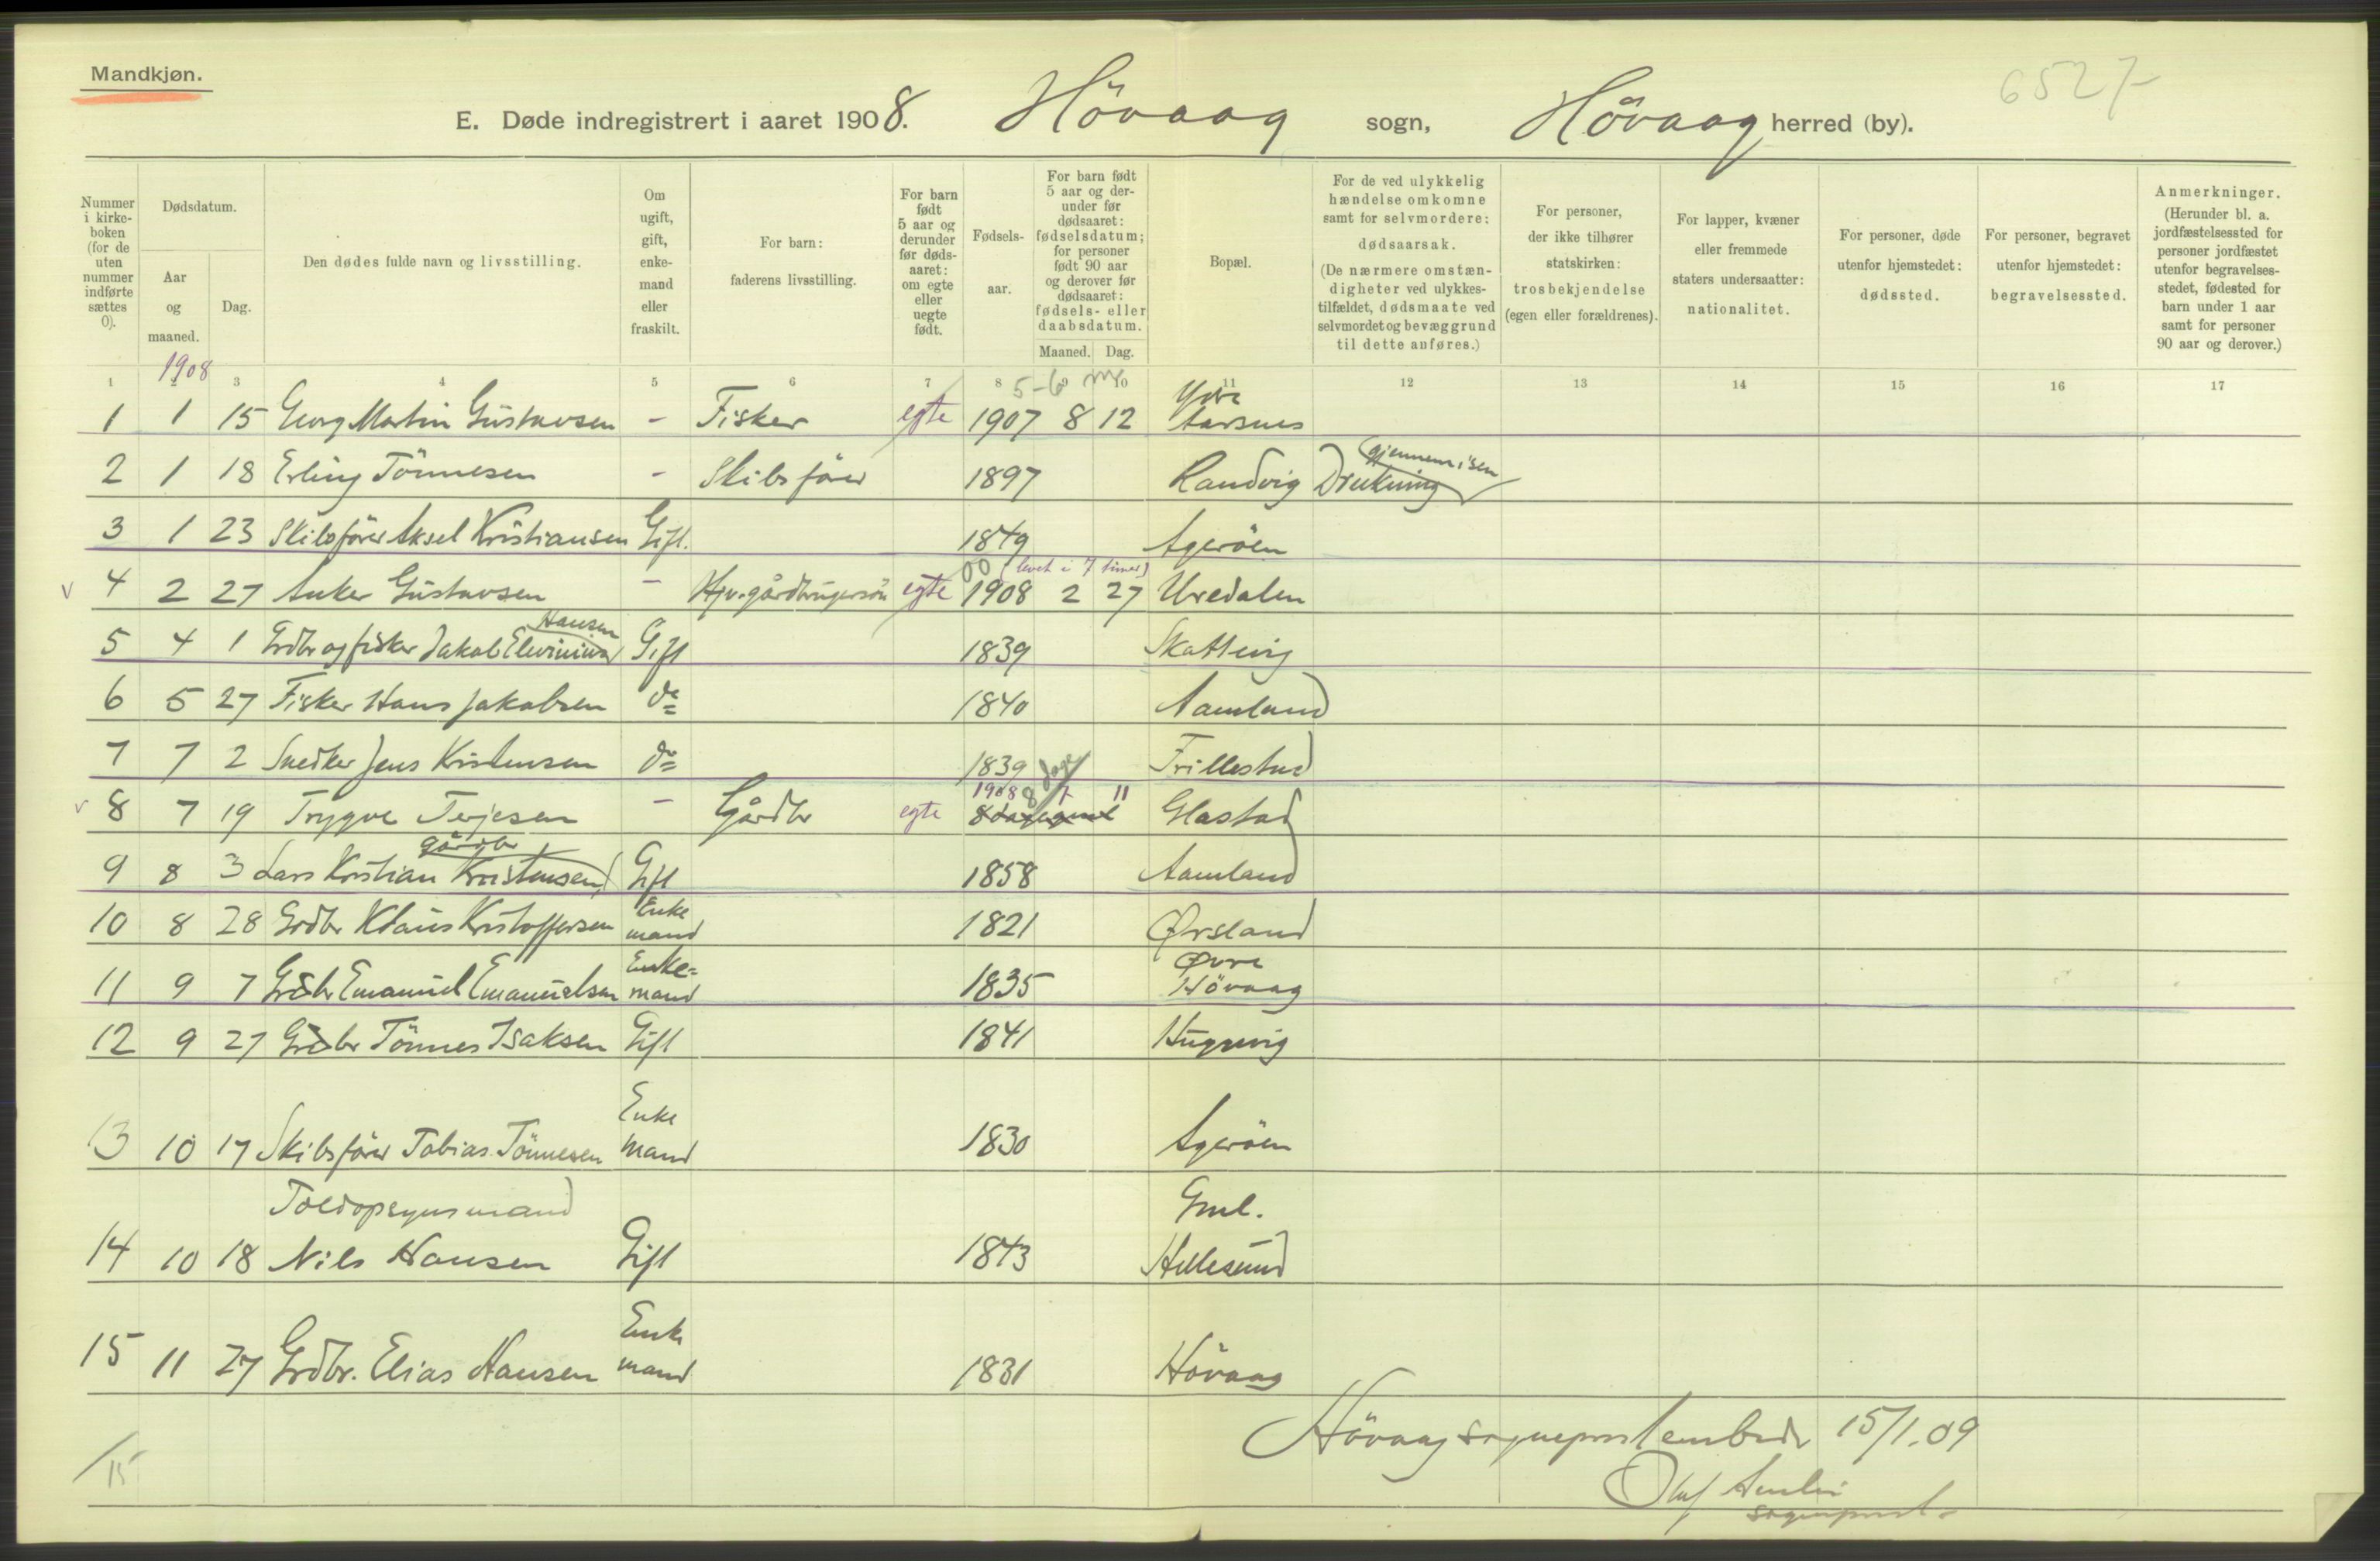 Mandkjøn.
6527
E. Døde indregistrert i aaret 1908. Hövaag sogn, Hövaag herred (by).
Nummer i kirke-boken (for de uten nummer indførte sættes 0).
Dødsdatum.
Aar og maaned.
Dag.
Den dødes fulde navn og livsstilling.
Om ugift, gift, enke-mand eller fraskilt.
For barn: faderens livsstilling.
For barn født 5 aar og derunder før døds-aaret: om egte eller uegte født.
Fødsels-aar.
For barn født 5 aar og der-under før dødsaaret: fødselsdatum; for personer født 90 aar og derover før dødsaaret: fødsels- eller daabsdatum.
Maaned. Dag.
Bopæl.
For de ved ulykkelig hændelse omkomne samt for selvmordere: dødsaarsak. (De nærmere omstæn-digheter ved ulykkes-tilfældet, dødsmaate ved selvmordet og bevæggrund til dette anføres.)
For personer, der ikke tilhører statskirken: trosbekjendelse (egen eller forældrenes).
For lapper, kvæner eller fremmede staters undersaatter: nationalitet.
For personer, døde utenfor hjemstedet: dødssted.
For personer, begravet utenfor hjemstedet: begravelsessted.
Anmerkninger. (Herunder bl. a. jordfæstelsessted for personer jordfæstet utenfor begravelses-stedet, fødested for barn under 1 aar samt for personer 90 aar og derover.)
1908
1 2 3 4 5 6 7 8 9 10 11 12 13 14 15 16 17
5-6
1 1 15 Georg Martin Gustavsen - Fisker egte 1907 8 12 Ydre Aarsnes
2 1 18 Erling Tönnesen - Skibsförer 1897 Randvig Drukning (gjennem isen
3 1 23 Skibsförer Aksel Kristiansen Gift. 1849 Agerøen
00 (levet i 7 timer)
v 4 2 27 Anker Gustavsen - egte 1908 2 27 Uredalen
Hansen
5 4 1 Grdbr og fisker Jakob Gift 1839 Skottevig
6 5 27 Fisker Hans Jakobsen do 1840 Aamland
7 7 2 Snedker Jens Kristensen do 1839 Trillestad
1908 8 dage 7 11
v 8 7 19 Trygve Terjesen - Gårdbr egte 8 dage gml Glastad
gårdbr
9 8 3 Lars Kristian Kristensen Gift 1858 Aamland
10 8 28 Grdbr Klaus Kristoffersen Enke mand 1821 Ørsland
11 9 7 Grdbr Emanuel Emanuelsen Enke= mand 1835 Øvre Hövaag
12 9 27 Grdbr Tönnes Isaksen Gift 1841
13 10 17 Skibsförer Tobias Tönnesen Enke mand 1830 Ageröen
Toldopsynsmand
14 10 18 Nils Hansen Gift 1843 Gml. Hellesund
15 11 27 Grdbr. Elias Hansen Enke mand 1831 Hövaag
Hövaag sogneprestembede 15/1.09
15
Oluf
sogneprest